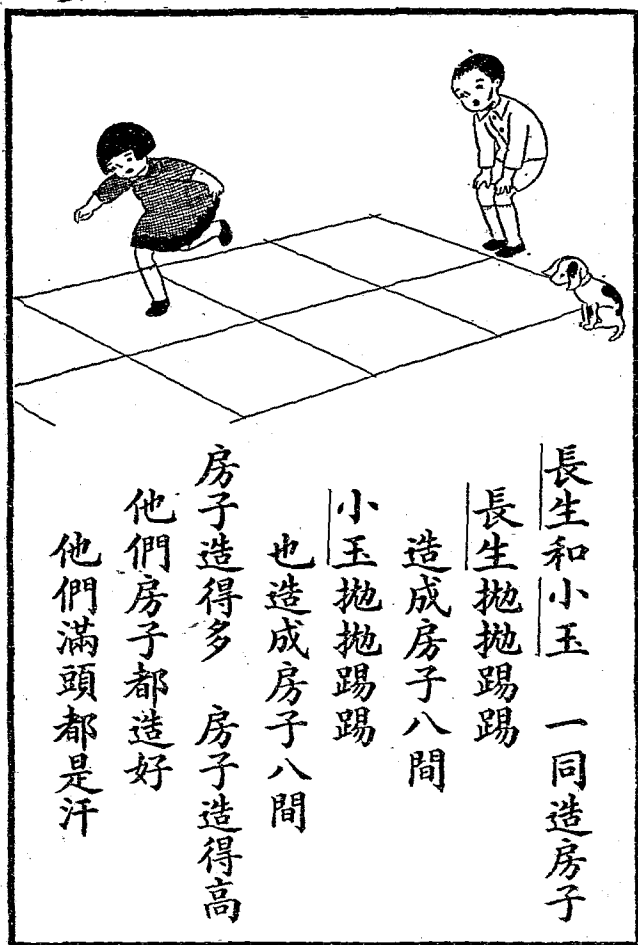 長生和小玉　一同造房子
長生拋拋踢踢
造成房子八間
小玉拋拋踢踢
也造成房子八間
房子造得多　房子造得高
他們房子都造好
他們滿頭都是汗